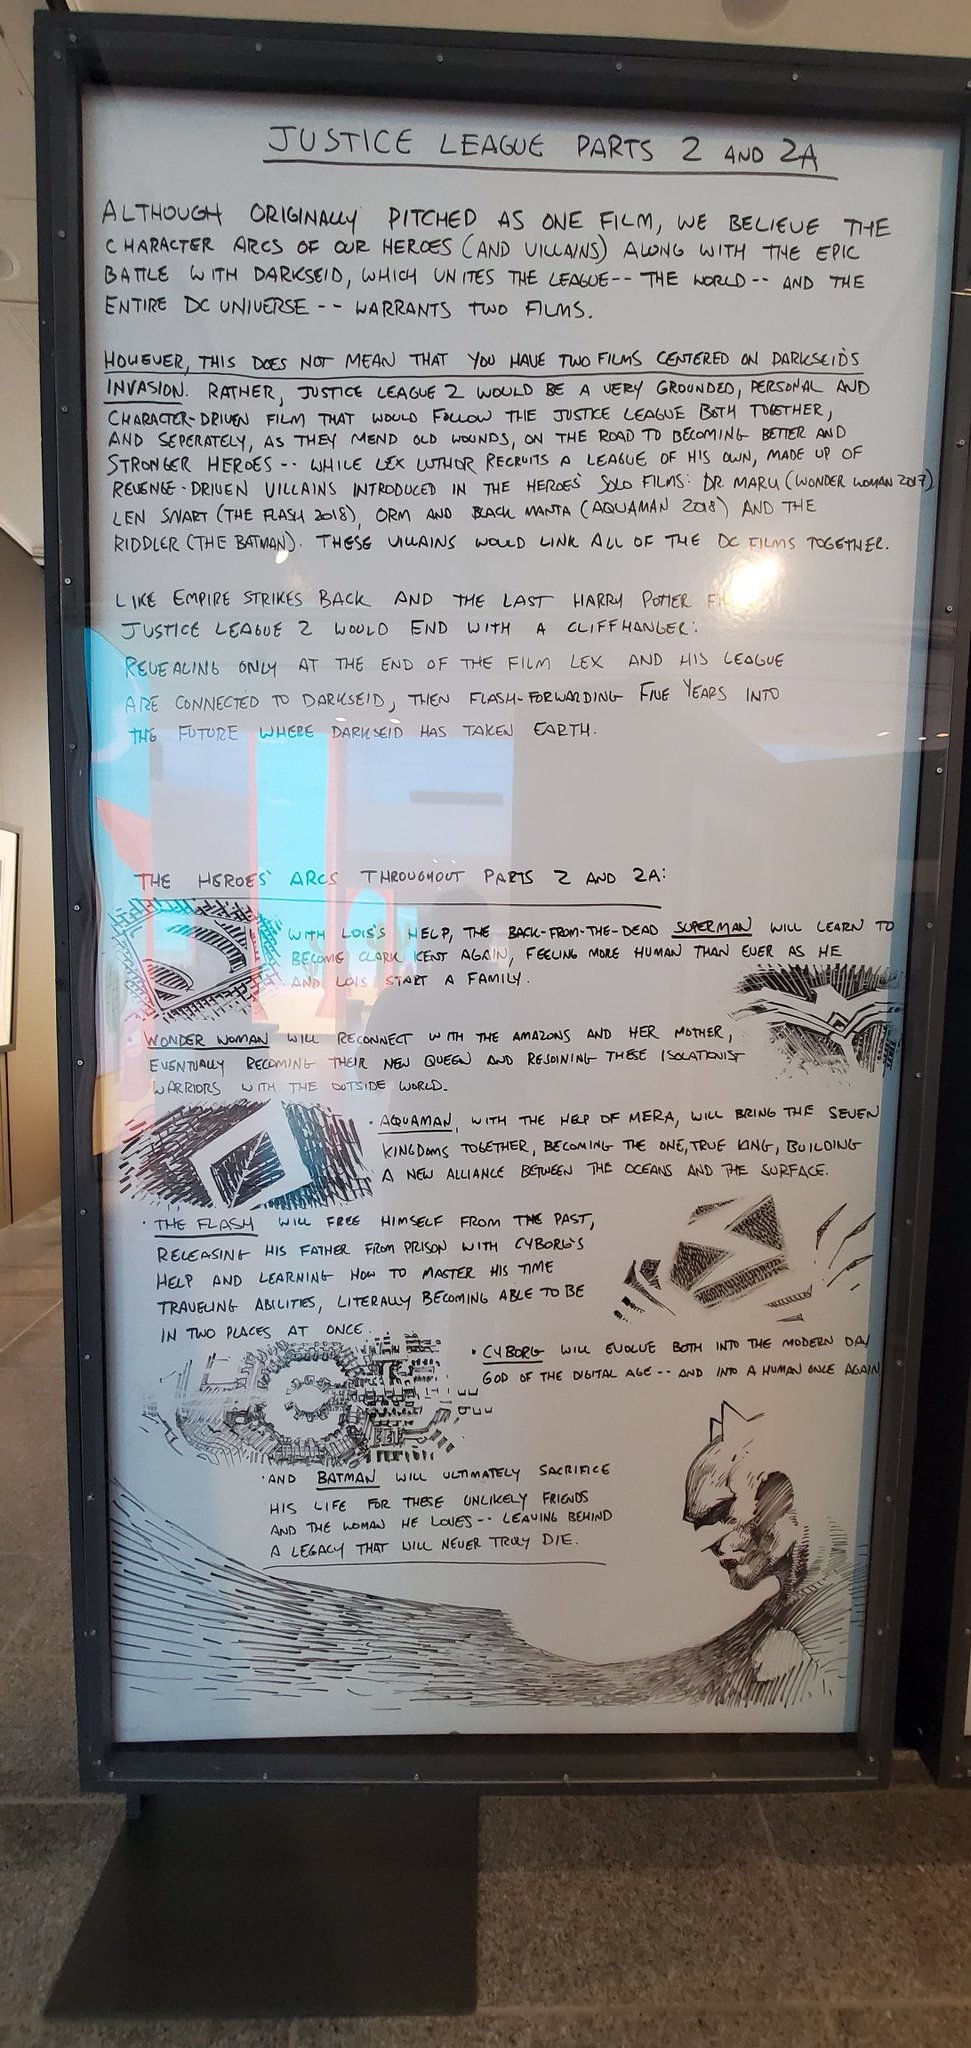 JUSTICE LEAGUE PARTS 2 AND 2A
ALTHOUGH ORIGINALLY PITCHED AS ONE FILM, WE BELIEVE THE
CHARACTER ARCS OF OUR HEROES (AND VILLAINS) ALONG WITH THE EPIC
BATTLE WITH DARKSEID, WHICH UNITES THE LEAGUE-- THE WORLD-- AND THE
ENTIRE DC UNIVERSE -- WARRANTS TWO FILMS.
HOWEVER, THIS DOES NOT MEAN THAT YOU HAVE TWO FILMS CENTERED ON DARKSEID'S
INVASION. RATHER, JUSTICE LEAGUE 2 WOULD BE A VERY GROUNDED, PERSONAL AND
CHARACTER-DRIVEN FILM THAT WOULD FOLLOW THE JUSTICE LEAGUE BOTH TOGETHER,
AND SEPERATELY, AS THEY MEND OLD WOUNDS, ON THE ROAD TO BECOMING BETTER AND
STRONGER HEROES -- WHILE LEX LUTHOR RECRUITS A LEAGUE OF HIS OWN, MADE UP OF
REVENGE-DRIVEN VILLAINS INTRODUCED IN THE HEROES' SOLO FILMS: DR. MARU (WONDER WOMAN 2017)
LEN SNART (THE FLASH 2018), ORM AND BLACK MANTA (AQUAMAN 2018) AND THE
RIDDLER (THE BATMAN). THESE VILLAINS WOULD LINK ALL OF THE DC FILMS TOGETHER.
LIKE EMPIRE STRIKES BACK AND THE LAST HARRY POTTER
JUSTICE LEAGUE 2 WOULD END WITH A CLIFFHANGER:
REVEALING ONLY AT THE END OF THE FILM LEX AND HIS LEAGUE
ARE CONNECTED TO DARKSEID, THEN FLASH-FORWARDING FIVE YEARS INTO
THE FUTURE WHERE DARKSEID HAS TAKEN EARTH.
THE HEROES' ARCS THROUGHOUT PARTS 2 AND 2A:
WITH LOIS'S HELP, THE BACK-FROM-THE-DEAD SUPERMAN WILL LEARN TO
BECOME CLARK KENT AGAIN, FEELING MORE HUMAN THAN EVER AS HE
AND LOIS START A FAMILY.
· WONDER WOMAN WILL RECONNECT WITH THE AMAZONS AND HER MOTHER,
EVENTUALLY BECOMING THEIR NEW QUEEN AND REJOINING THESE ISOLATIONIST
WARRIORS WITH THE OUTSIDE WORLD.
· AQUAMAN, WITH THE HELP OF MERA, WILL BRING THE SEVEN
KINGDOMS TOGETHER, BECOMING THE ONE, TRUE KING, BUILDING
A NEW ALLIANCE BETWEEN THE OCEANS AND THE SURFACE.
· THE FLASH WILL FREE HIMSELF FROM THE PAST,
RELEASING HIS FATHER FROM PRISON WITH CYBORG'S
HELP AND LEARNING HOW TO MASTER HIS TIME
TRAVELING ABILITIES, LITERALLY BECOMING ABLE TO BE
IN TWO PLACES AT ONCE.
· CYBORG WILL EVOLVE BOTH INTO THE MODERN DAY
GOD OF THE DIGITAL AGE -- AND INTO A HUMAN ONCE AGAIN
· AND BATMAN WILL ULTIMATELY SACRIFICE
HIS LIFE FOR THESE UNLIKELY FRIENDS
AND THE WOMAN HE LOVES -- LEAVING BEHIND
A LEGACY THAT WILL NEVER TRULY DIE.